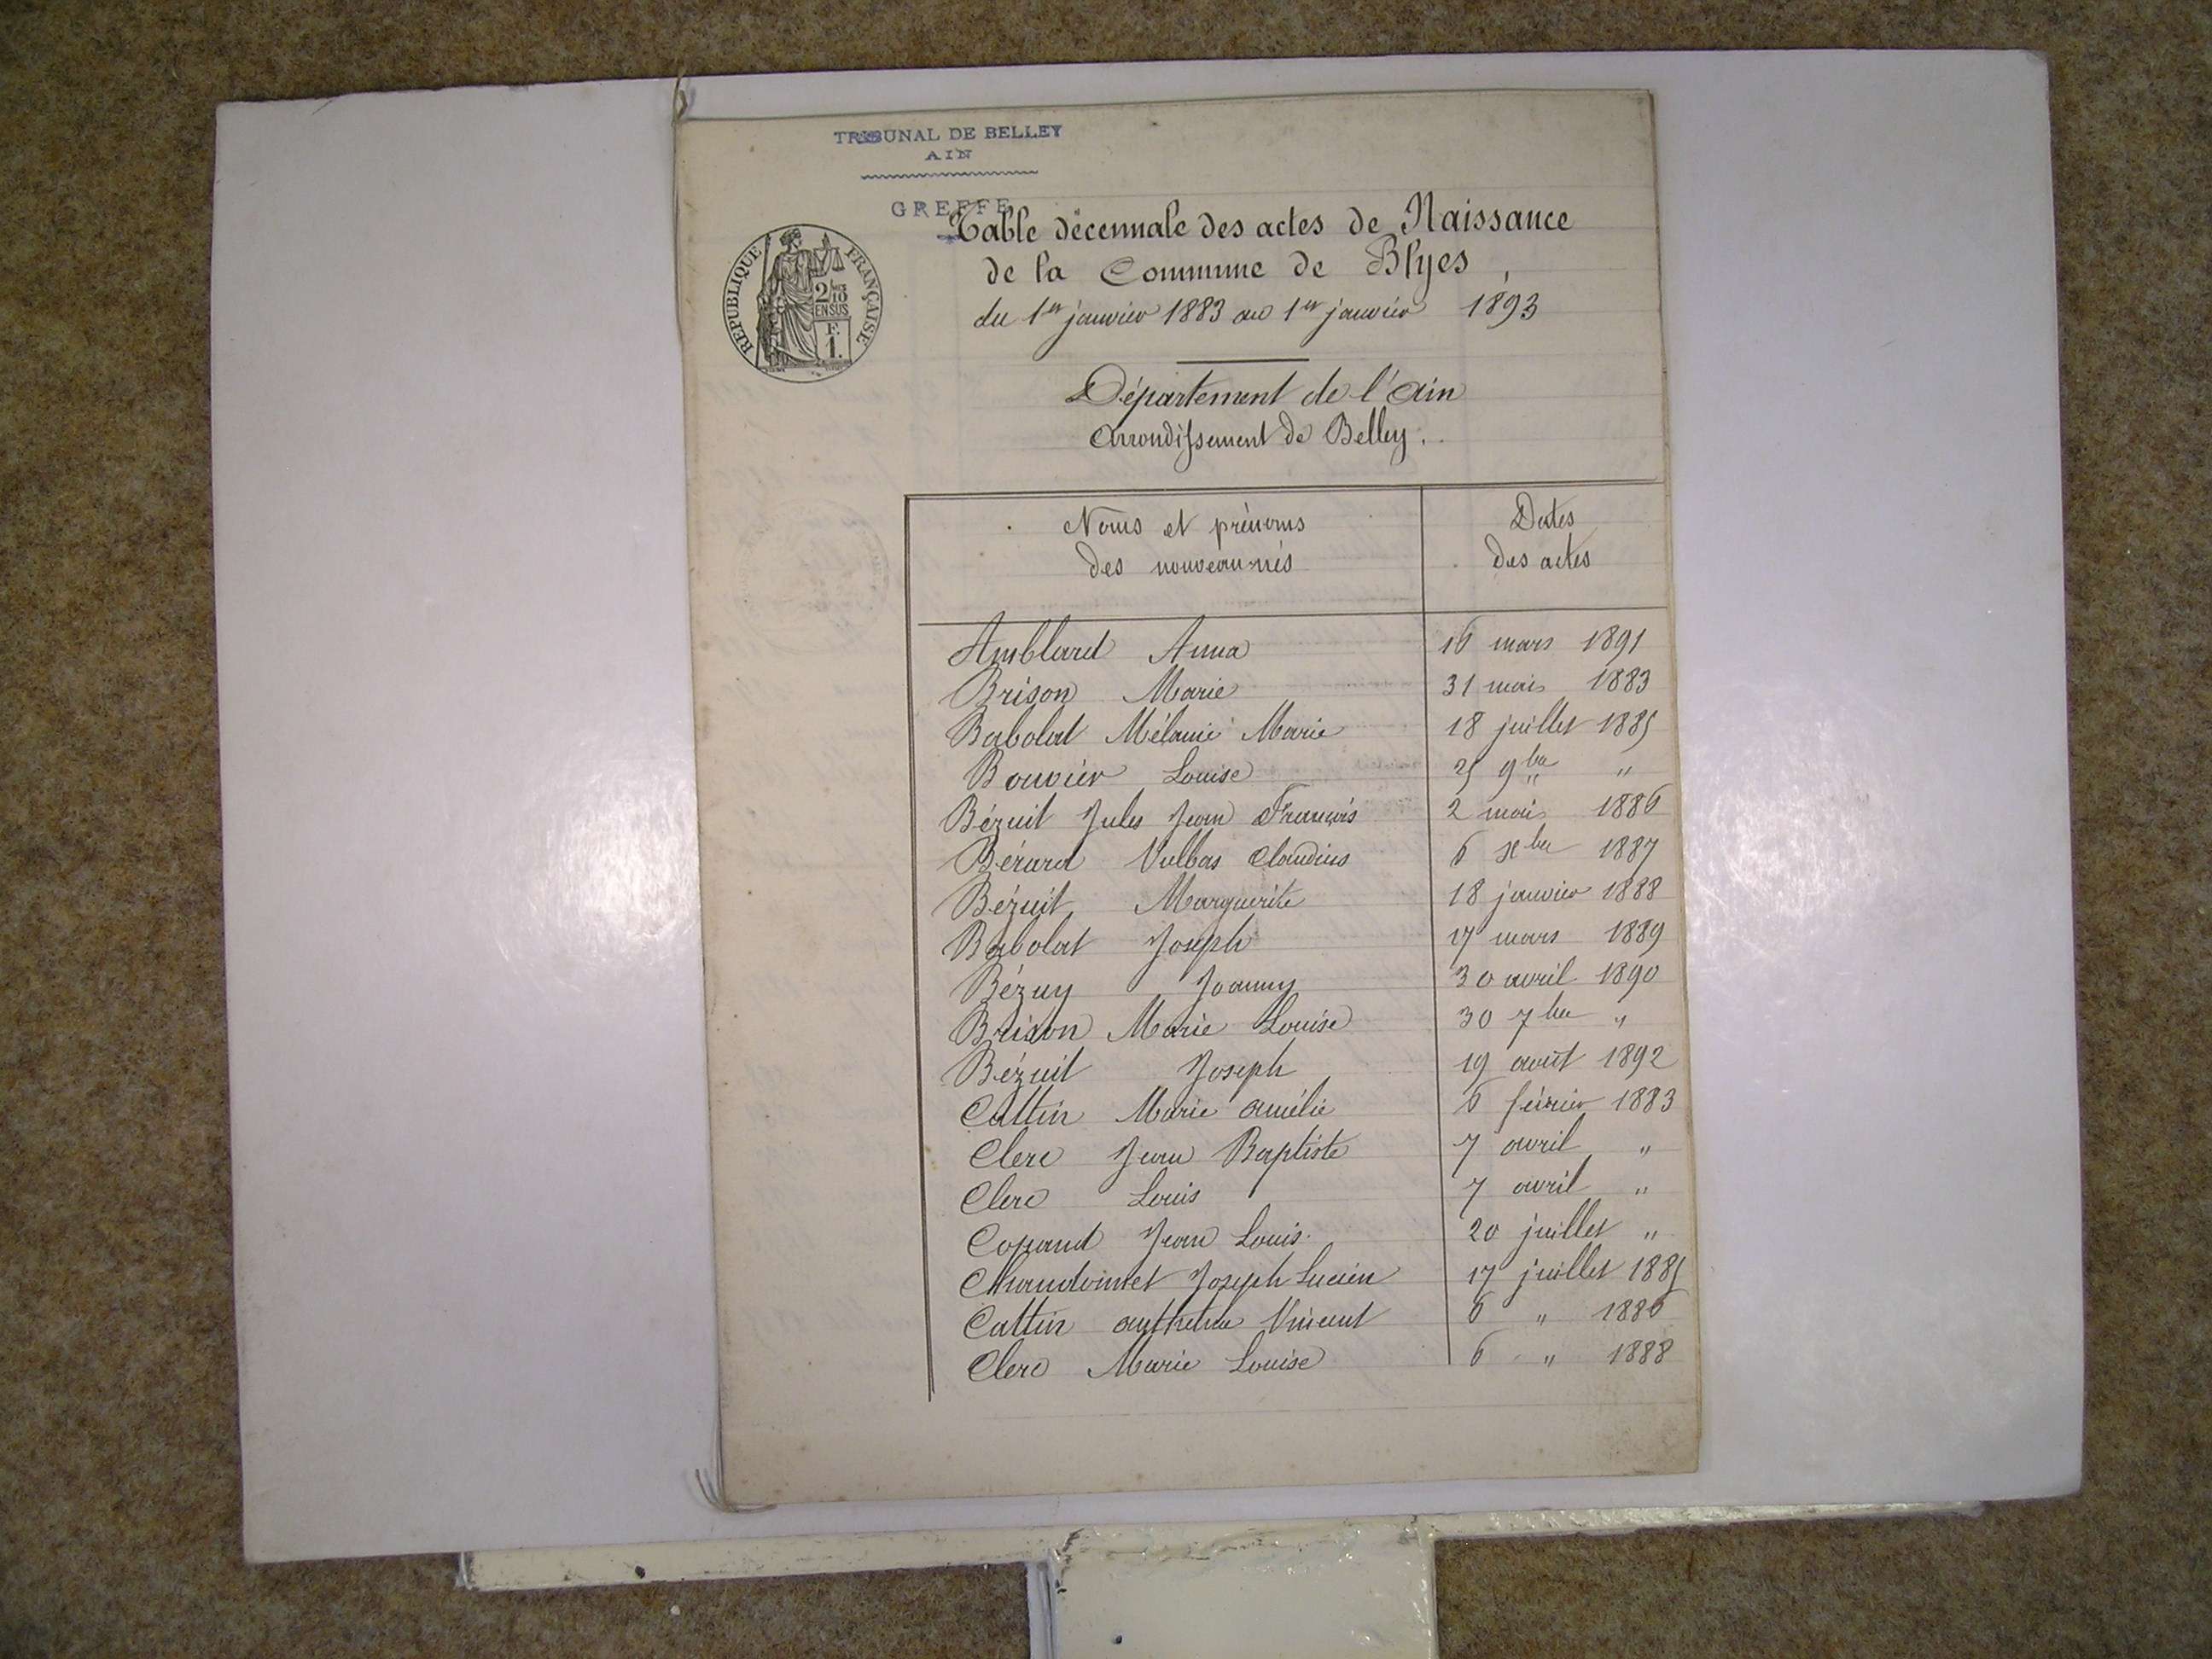 TRIBUNAL DE BELLEY
AIN
GREFFE
Table décennale des actes de Naissance
de la Commune de Blyes,
du 1er janvier 1883 au 1er janvier 1893
RÉPUBLIQUE FRANÇAISE
2/10
EN SUS
F.
1.
Département de l'Ain
Arrondissement de Belley.
Noms et prénoms Dates
des nouveau-nés des actes
Amblard Anna 16 mars 1891
Brison Marie 31 mai 1883
Babolat Mélanie Marie 18 juillet 1885
Bouvier Louise 25 9bre "
Bézuit Jules Jean François 2 mai 1886
Bérard Vulbas Claudius 6 xbre 1887
Bézuit Marguerite 18 janvier 1888
Babolat Joseph 17 mars 1889
Bézuy Joanny 30 avril 1890
Brison Marie Louise 30 7bre "
Bézuit Joseph 19 août 1892
Cattin Marie Amélie 6 février 1883
Clerc Jean Baptiste 7 avril "
Clerc Louis 7 avril "
Copand Jean Louis. 20 juillet "
Chandoinet Joseph Lucien 17 juillet 1885
Cattin Vincent 6 " 1886
Clerc Marie Louise 6 " 1888